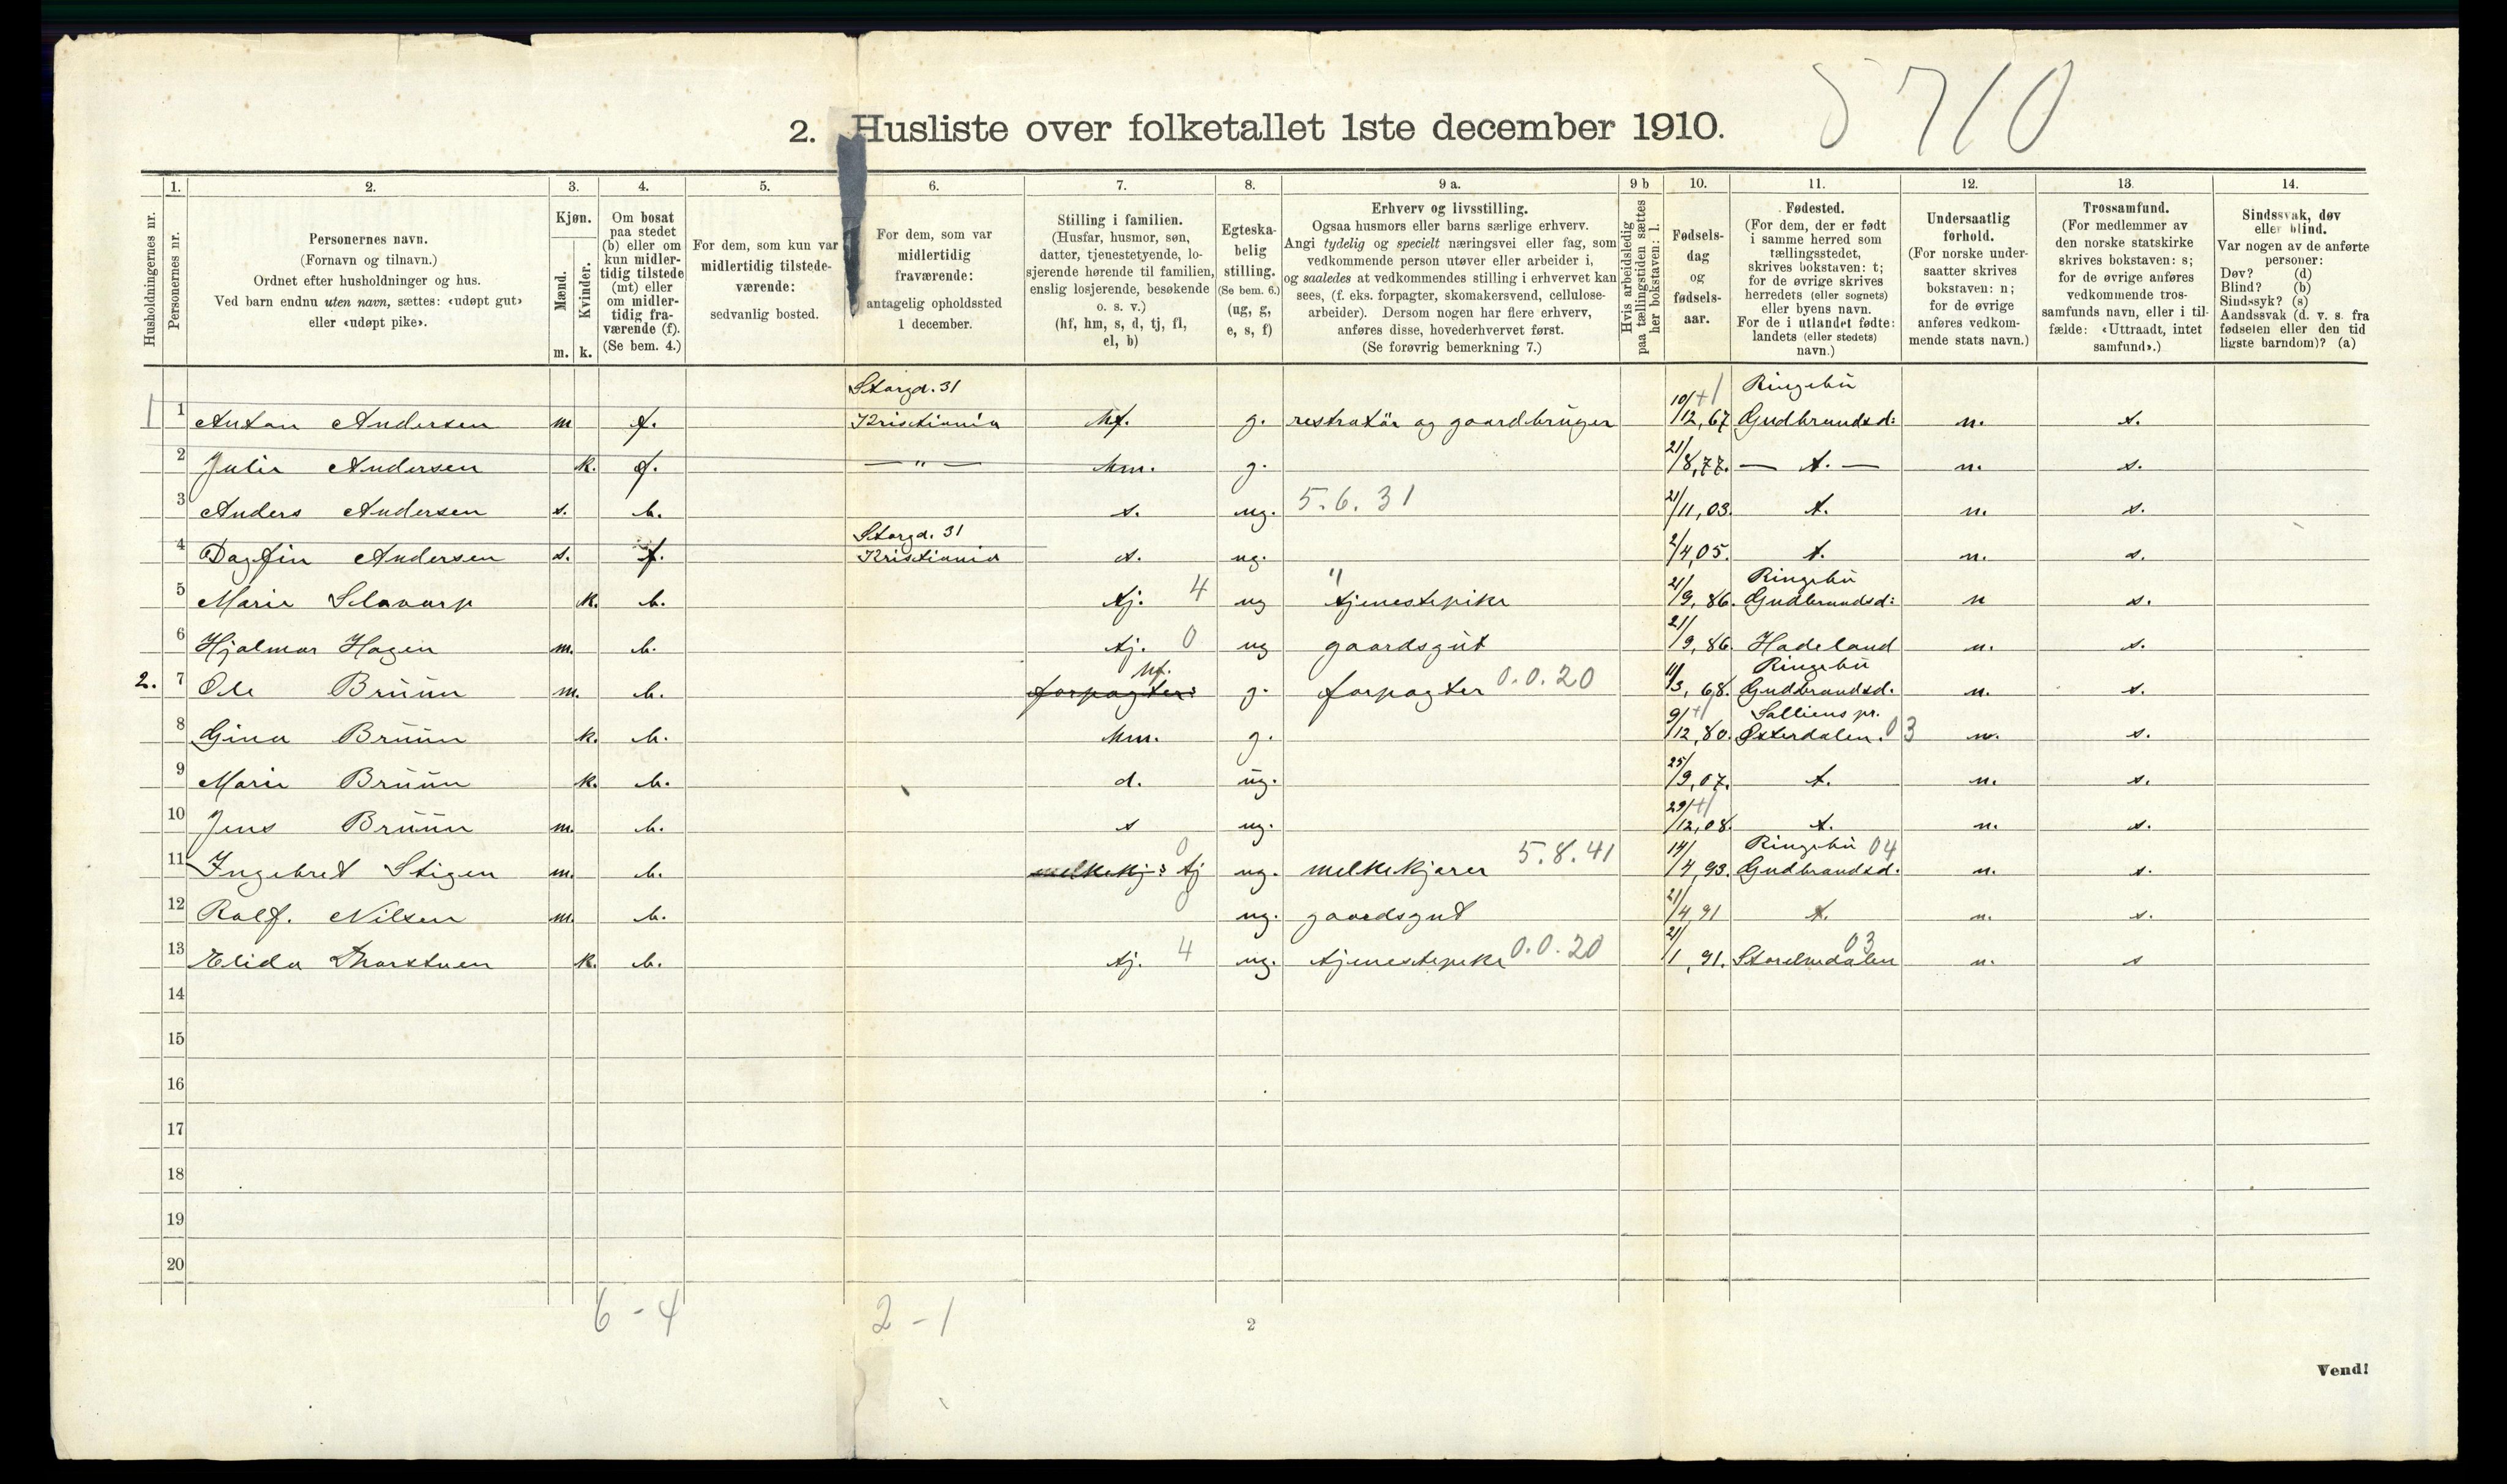 5710
2. Husliste over folketallet 1ste december 1910.
Husholdningernes nr.
1. Personernes nr.
2. Personernes navn.
(Fornavn og tilnavn.)
Ordnet efter husholdninger og hus.
Ved barn endnu uten navn, sættes: «udøpt gut»
eller «udøpt pike».
3. Kjøn.
Mænd. Kvinder.
m. k.
4. Om bosat
paa stedet
(b) eller om
kun midler-
tidig tilstede
(mt) eller
om midler-
tidig fra-
værende (f).
(Se bem. 4.)
5. For dem, som kun var
midlertidig tilstede-
værende:
sedvanlig bosted.
6. For dem, som var
midlertidig
fraværende:
antagelig opholdssted
1 december.
7. Stilling i familien.
(Husfar, husmor, søn,
datter, tjenestetyende, lo-
sjerende hørende til familien,
enslig losjerende, besøkende
o. s. v.)
(hf, hm, s, d, tj, fl,
el, b)
8. Egteska-
belig
stilling.
(Se bem. 6.)
(ug, g,
e, s, f)
9 a. Erhverv og livsstilling.
Ogsaa husmors eller barns særlige erhverv.
Angi tydelig og specielt næringsvei eller fag, som
vedkommende person utøver eller arbeider i,
og saaledes at vedkommendes stilling i erhvervet kan
sees, (f. eks. forpagter, skomakersvend, cellulose-
arbeider). Dersom nogen har flere erhverv,
anføres disse, hovederhvervet først.
(Se forøvrig bemerkning 7.)
9 b Hvis arbeidsledig
paa tællingstiden sættes
her bokstaven: l.
10. Fødsels-
dag
og
fødsels-
aar.
11. Fødested.
(For dem, der er født
i samme herred som
tællingsstedet,
skrives bokstaven: t;
for de øvrige skrives
herredets (eller sognets)
eller byens navn.
For de i utlandet fødte:
landets (eller stedets)
navn.)
12. Undersaatlig
forhold.
(For norske under-
saatter skrives
bokstaven: n;
for de øvrige
anføres vedkom-
mende stats navn.)
13. Trossamfund.
(For medlemmer av
den norske statskirke
skrives bokstaven: s;
for de øvrige anføres
vedkommende tros-
samfunds navn, eller i til-
fælde: «Uttraadt, intet
samfund».)
14. Sindssvak, døv
eller blind.
Var nogen av de anførte
personer:
Døv? (d)
Blind? (b)
Sindssyk? (s)
Aandssvak (d. v. s. fra
fødselen eller den tid
ligste barndom)? (a)
Storgd. 31 Ringebu
1 1 Anton Andersen m f. Kristiania hf. g. restratør og gaardbruger 10/12, 67 Gudbrandsd: n. s.
2 Julie Andersen k. f. — " — hm. g. 21/8, 77. — t. — n. s.
3 Anders Andersen s. b. s. ug. 5.6.31 21/11, 03. t. n. s.
Storgd. 31
4 Dagfin Andersen s. f. Kristiania s. ug. 2/4, 05. t. n. s.
" Ringebu
5 Marie k. b. tj. 4 ug tjenestepike 21/9, 86. Gudbrandsd: n s.
6 Hjalmar Hagen m. b. tj. 0 ug gaardsgut 21/9, 86. Hadeland n. s.
hf. Ringebu
2. 7 Ole Bruun m. b. forpagter: g. forpagter 0.0.20 11/3, 68. Gudbrandsd. n. s.
Solliens pr.
8 Gina Bruun k. b. hm. g. 9/12, 80. Østerdalen. 03 n. s.
9 Marie Bruun k. b. d. ug. 25/9, 07. t. n. s.
10 Jens Bruun m. b. s ug. 29/12, 08. t. n. s.
0 5.8.41 Ringebu 04
11 Ingebret Stigen m. b. melkekj: tj ug. melkekjører 14/4, 93. Gudbrandsd. n. s.
12 Rolf. Nilsen m. b. 0 ug. gaardsgut 21/4, 91 t. n. s.
13 Elida Thorstuen k. b. tj. 4 ug. tjenestepike 0.0.20 21/1, 91. Storelvedalen 03 n. s
14
15
16
17
18
19
20
6 - 4 2 - 1
2
Vend!